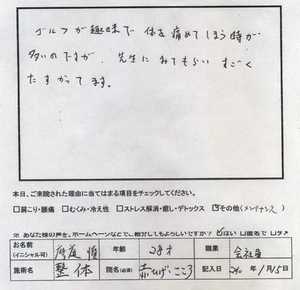 ゴルフが趣味で 体を痛めてしまう時が
多いのですが、先生にみてもらい すごく
たすかってます。
本日、ご来院された理由に当てはまる項目をチェックしてください。
□肩こり・腰痛 □むくみ・冷え性 □ストレス解消・癒し・デトックス ☑その他(メンテナンス)
※ あなた様の声を、ホームページなどで、ご紹介してもよろしいですか? ☑はい □匿名で □ダメ
お名前 (イニシャル可) 年齢 28才 職業 会社員
施術名 整体 院名(必須) 赤ひげ・こころ 記入日 1月15日